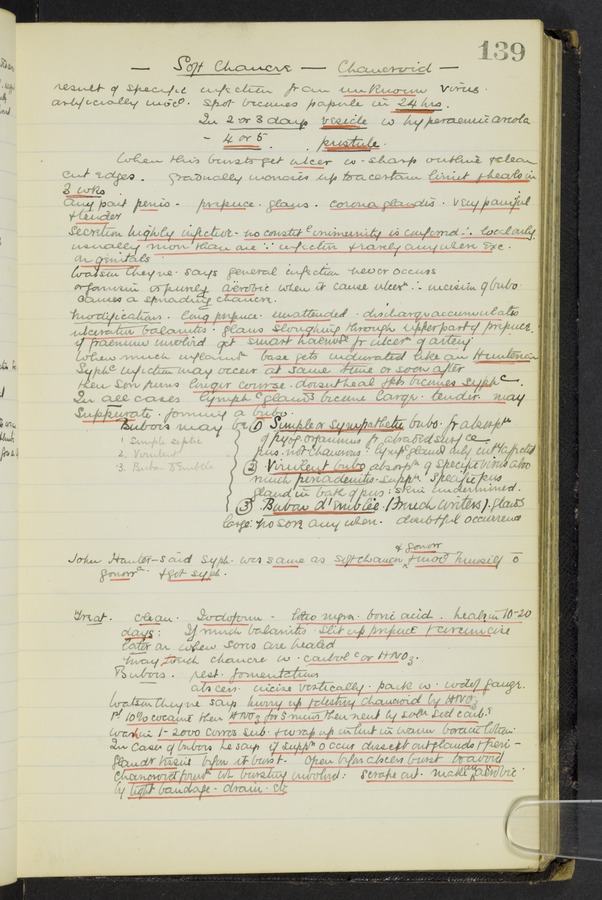 139
— Soft Chancre — Chancroid —
result of specific infection from an unknown virus.
artificially inocd. spot becomes papule in 24 hrs.
In 2 or 3 days vesicle w hyperaemic areola
- 4 or 5 . pustule.
When this bursts get ulcer w. sharp outline & clean
cut edges. Gradually increases up to a certain limit & heals in
3 wks.
any part penis - prepuce. glans. corona glandis. very painful
& tender
Secretion highly infective. no constitl immunity is conferred ∴ locally only.
usually more than one ∵ infective & rarely anywhere exc.
on genitals.
Watson Cheyne. says general infection never occurs
organism is purely aerobic when it cause ulcer ∴ incision of bubo
causes a spreading chancre.
Modifications. long prepuce. unattended. discharge accumulates
ulcerative balanitis. glans sloughing through upper part of prepuce.
if fraenum involved get smart haemge fr ulcern of artery
When much inflamn base gets indurated like an Hunterian
Syphc infection may occur at same time or soon after
then sore runs longer course. dorsal heal becomes syphc.
In all cases lymphc glands become large. tender. may
suppurate. forming a bubo.
Bubors may be ① Simple or sympathetic bubo. fr absorpn
1 Simple septic
of pyog. organisms fr abraded surface
2. Virulent
pus not chancrous: lymph gland only affected
3. Bubon d'emblée
② Virulent bubo absorpn of specific virus also
much periadenitis. suppn. specific pus
gland in bath of pus: skin undermined.
③ Bubon d'emblée. (French writers). glands
large: no sore anywhere. doubtful occurrence
& gonorr
John Hunter - said syph. was same as soft chancre & inocd himself c̄
gonorra. & got syph.
Treat. clean. Iodoform - lotio nigra. boric acid. heals in 10-20
days: If much balanitis slit up prepuce & circumcise
later on when sores are healed
may touch chancre w. carbolc or HNO3.
Bubors. rest. fomentations
abscess. incise vertically. pack w. iodof gauze.
Watson Cheyne says hurry up & destroy chancroid by HNO3
1st 10% cocaine then HNO3 for 5 mins then neut by soln sod carb.
wash in 1-2000 corros sub. & wrap up in lint in warm boracic lotion.
In case of bubors he says if suppn occurs dissect out glands & peri-
glandr tissue before it burst. Open before abscess burst to avoid
chancroid wh bursting involved: scrape out. make anaerobic
by tight bandage. drain. etc